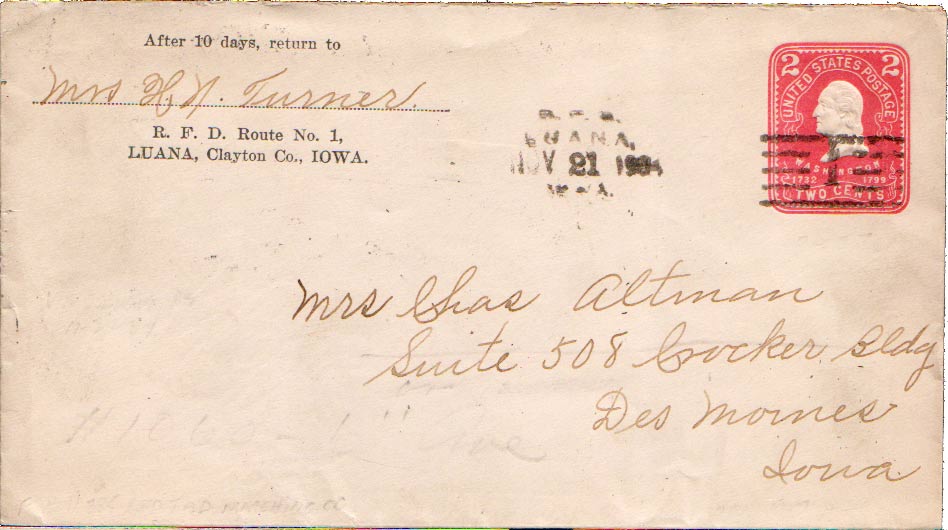 After 10 days, return to
Mrs H. N. Turner.
R. F. D. Route No. 1,
LUANA, Clayton Co., IOWA.
LUANA,
NOV 21 1904
2 2
UNITED STATES POSTAGE
WASHINGTON
1732 1799
TWO CENTS
1
Mrs Chas Altman
Suite 508 Crocker Bldg
Des Moines
Iowa